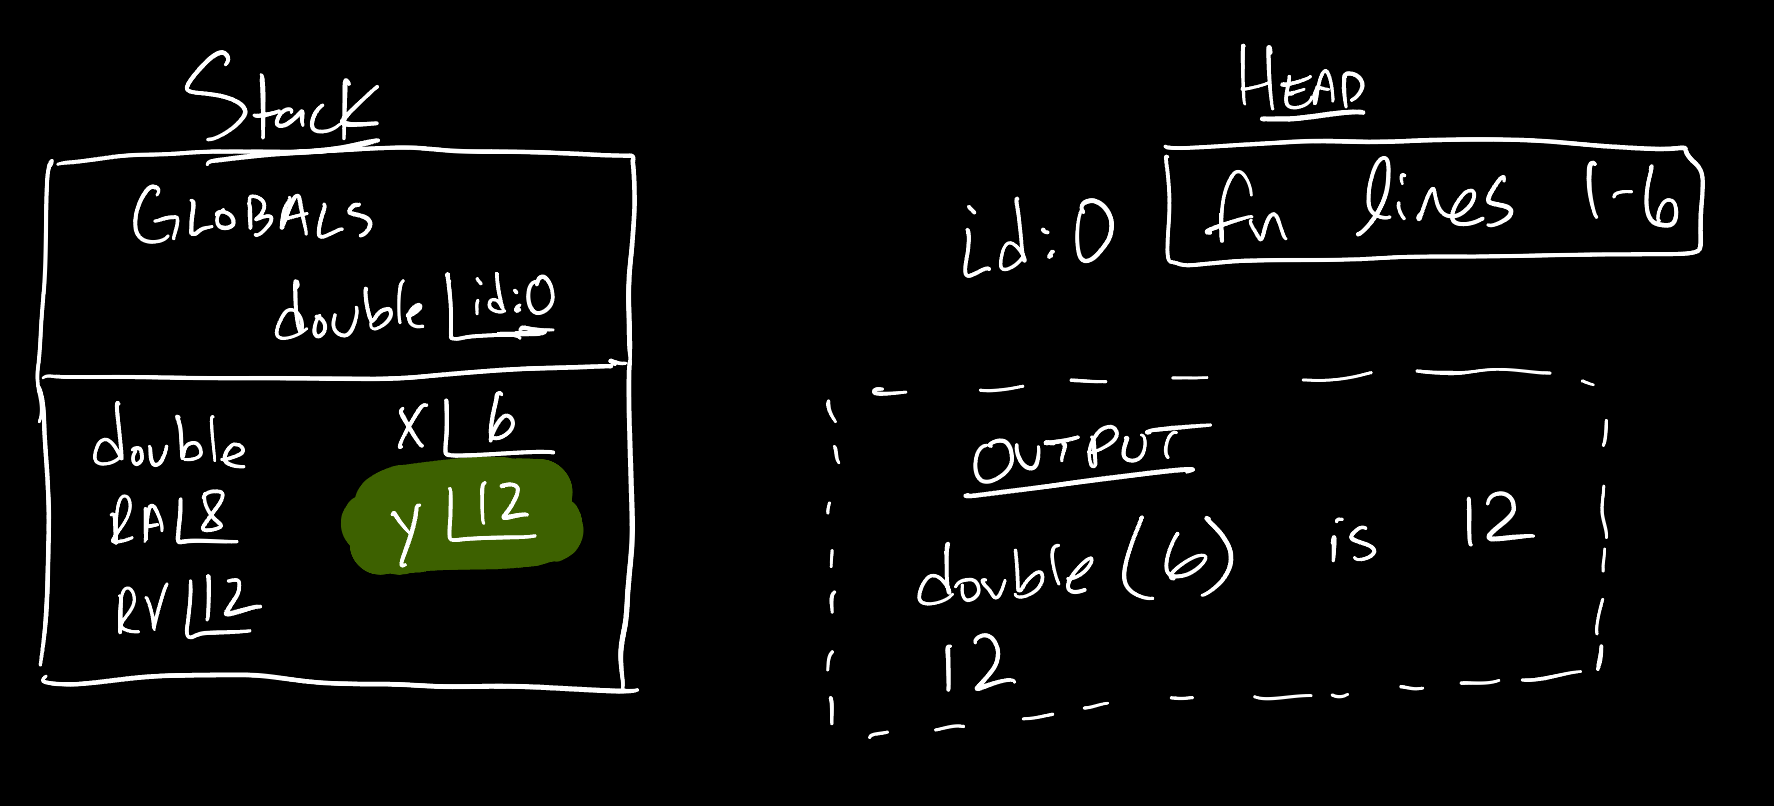 Stack
GLOBALS
double id:0
double x 6
RA 8 y 12
RV 12
HEAD
id:0 fn lines 1-6
OUTPUT
double(6) is 12
12